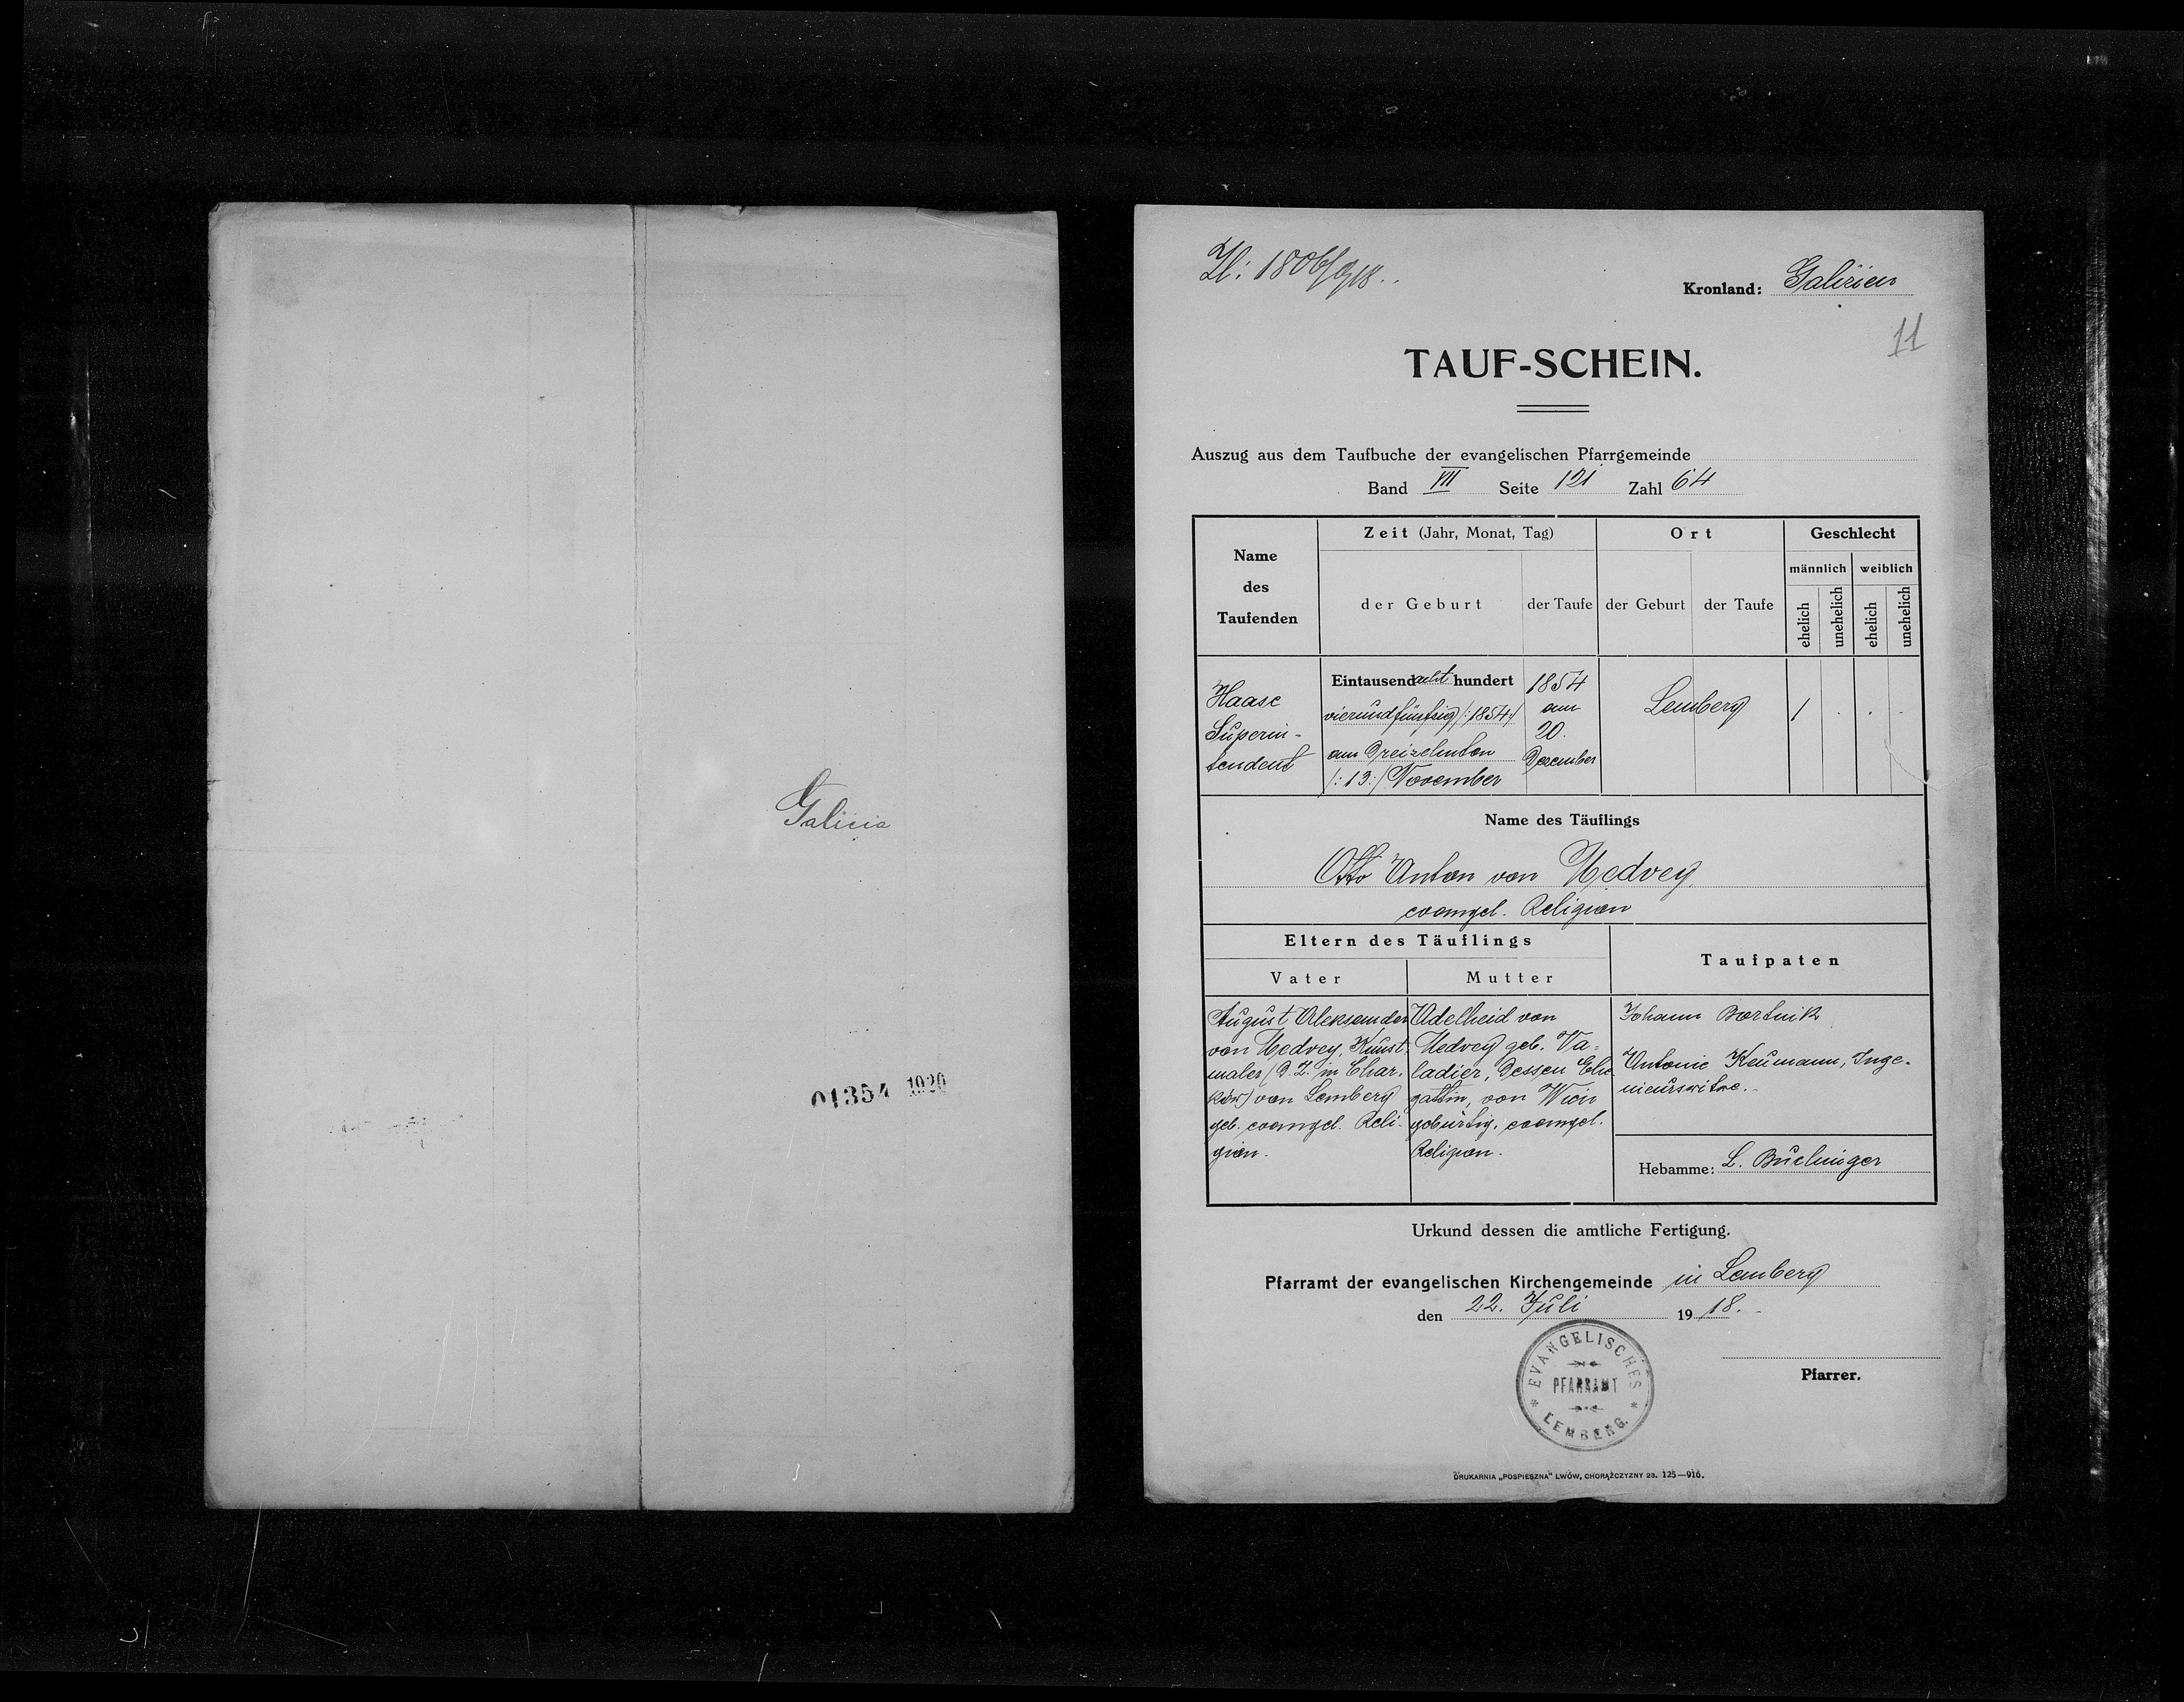 Galicia
01354 1920
Zl: 1806/918..
Kronland: Galizien
11
TAUF-SCHEIN.
Auszug aus dem Taufbuche der evangelischen Pfarrgemeinde
Band VII Seite 121 Zahl 64
Name des Taufenden
Zeit (Jahr, Monat, Tag)
Ort
Geschlecht
der Geburt
der Taufe
der Geburt
der Taufe
männlich
weiblich
ehelich
unehelich
ehelich
unehelich
Haase
Superin-
tendent
Eintausendacht hundert
vierundfünfzig /:1854:/
am Dreizehnten
/:13:/ November
1854
am
20.
Dezember
Lemberg
1 . . .
Name des Täuflings
Otto Anton von Medvey
evangel. Religion
Eltern des Täuflings
Taufpaten
Vater
Mutter
August Aleksander
von Medvey, Kunst-
maler (d. Z. in Char-
ków) von Lemberg
geb. evangel. Reli-
gion.
Adelheid von
Medvey geb. Va-
ladier, dessen Ehe-
gattin, von Wien
gebürtig, evangel.
Religion.
Johann Bortnik
Antonie Neumann, Inge-
nieurswitwe.
Hebamme: L. Buchinger
Urkund dessen die amtliche Fertigung.
Pfarramt der evangelischen Kirchengemeinde in Lemberg
den 22. Juli 1918.
EVANGELISCHES
PFARRAMT
LEMBERG.
Pfarrer.
DRUKARNIA „POSPIESZNA" LWÓW, CHORĄŻCZYZNY 23. 125—916.